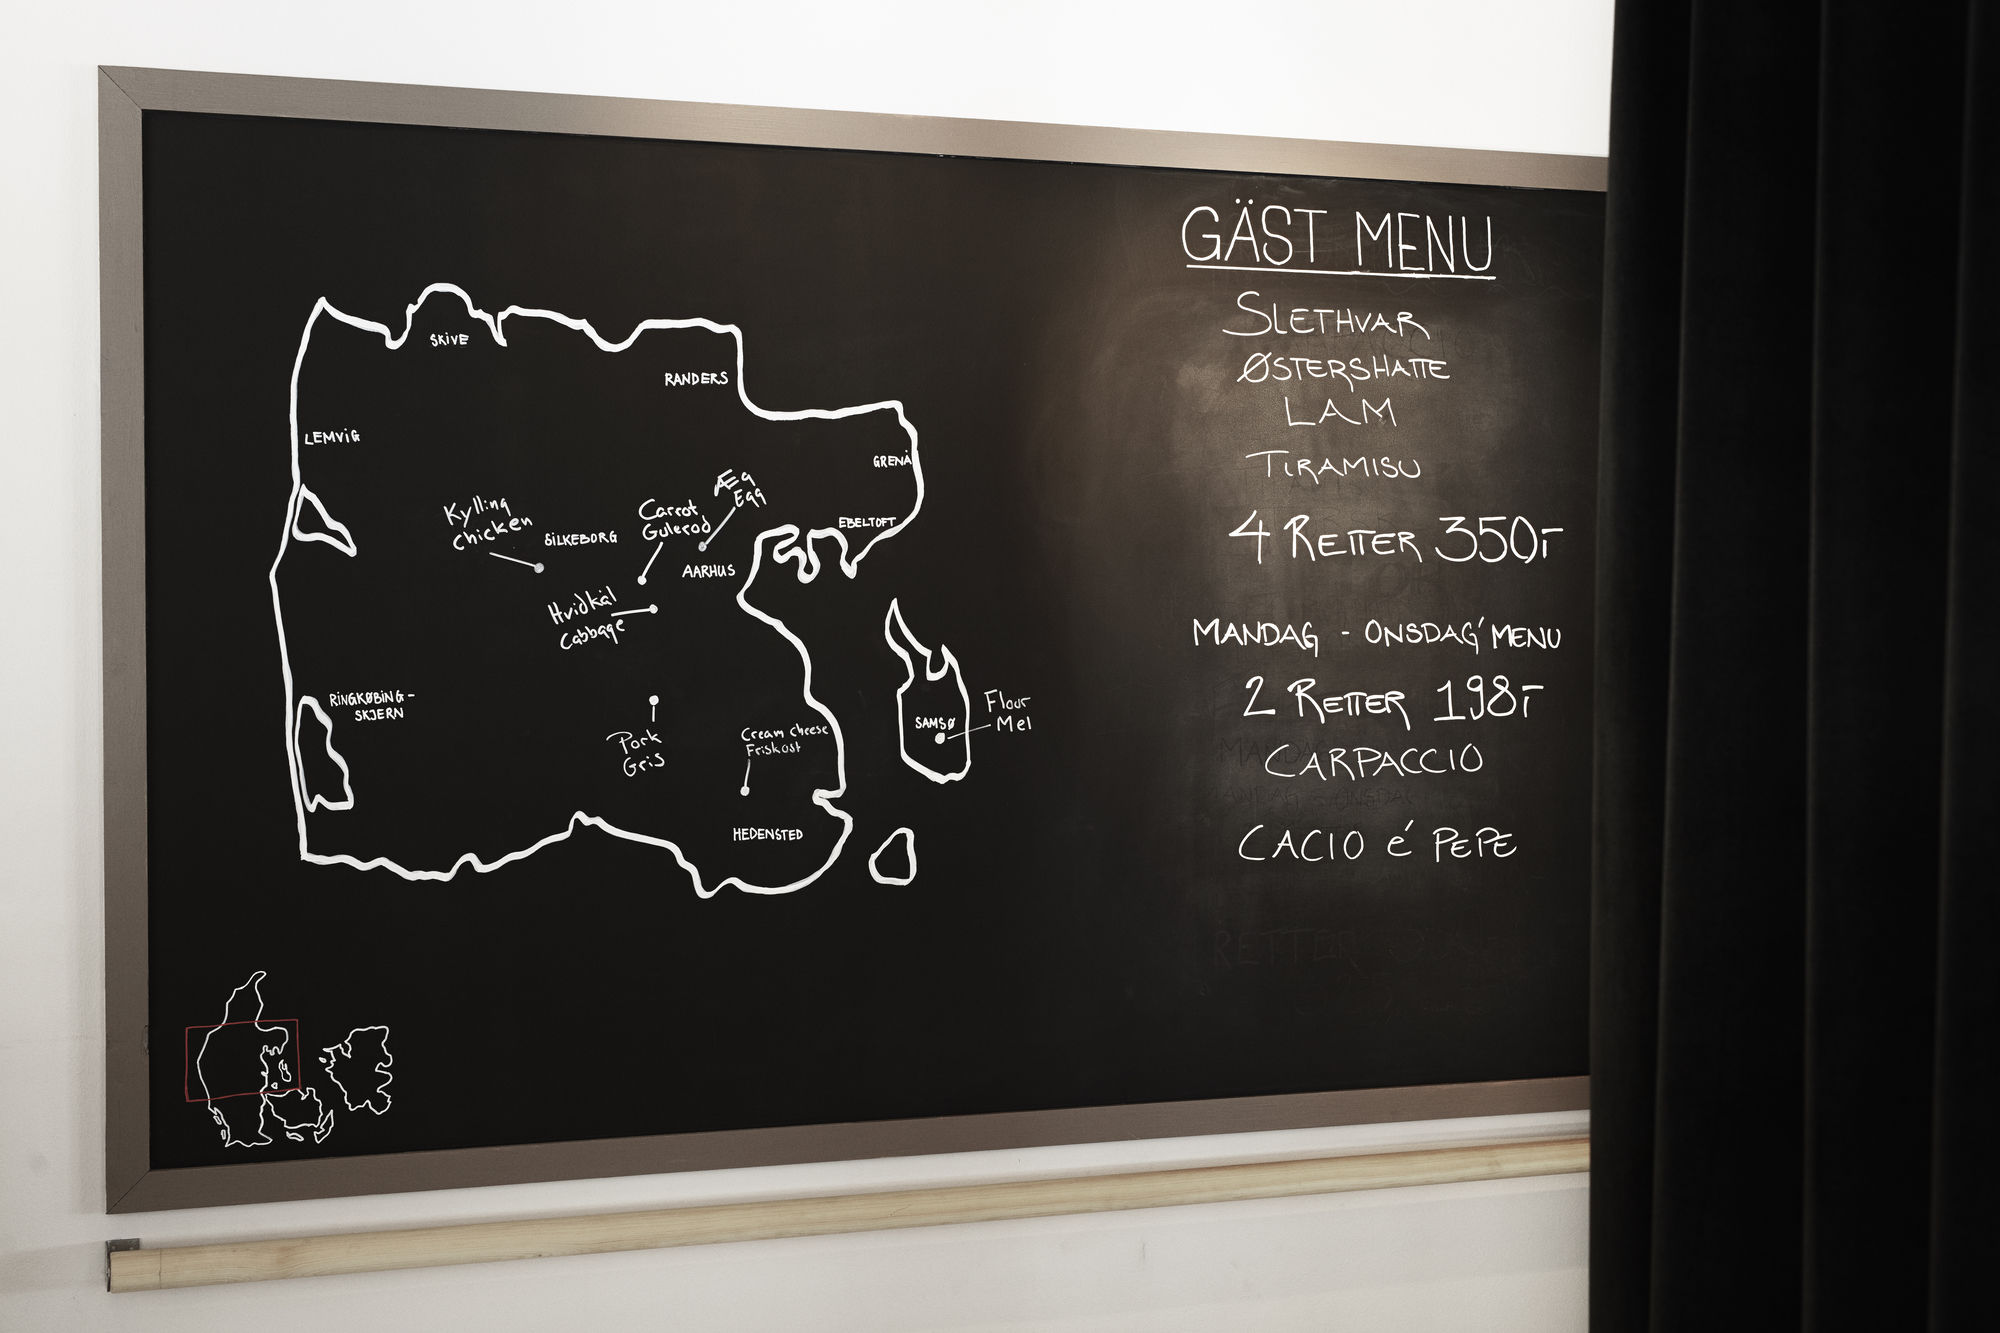 GÄST MENU
SLETHVAR
ØSTERSHATTE
LAM
TIRAMISU
4 RETTER 350,-
MANDAG - ONSDAG MENU
2 RETTER 198,-
CARPACCIO
CACIO é PEPE
SKIVE
RANDERS
LEMVIG
GRENÅ
Kylling
chicken
SILKEBORG
Carrot
Gulerod
Æg
Egg
EBELTOFT
AARHUS
Hvidkål
Cabbage
RINGKØBING-
SKJERN
Pork
Gris
Cream cheese
Friskost
SAMSØ
Flour
Mel
HEDENSTED